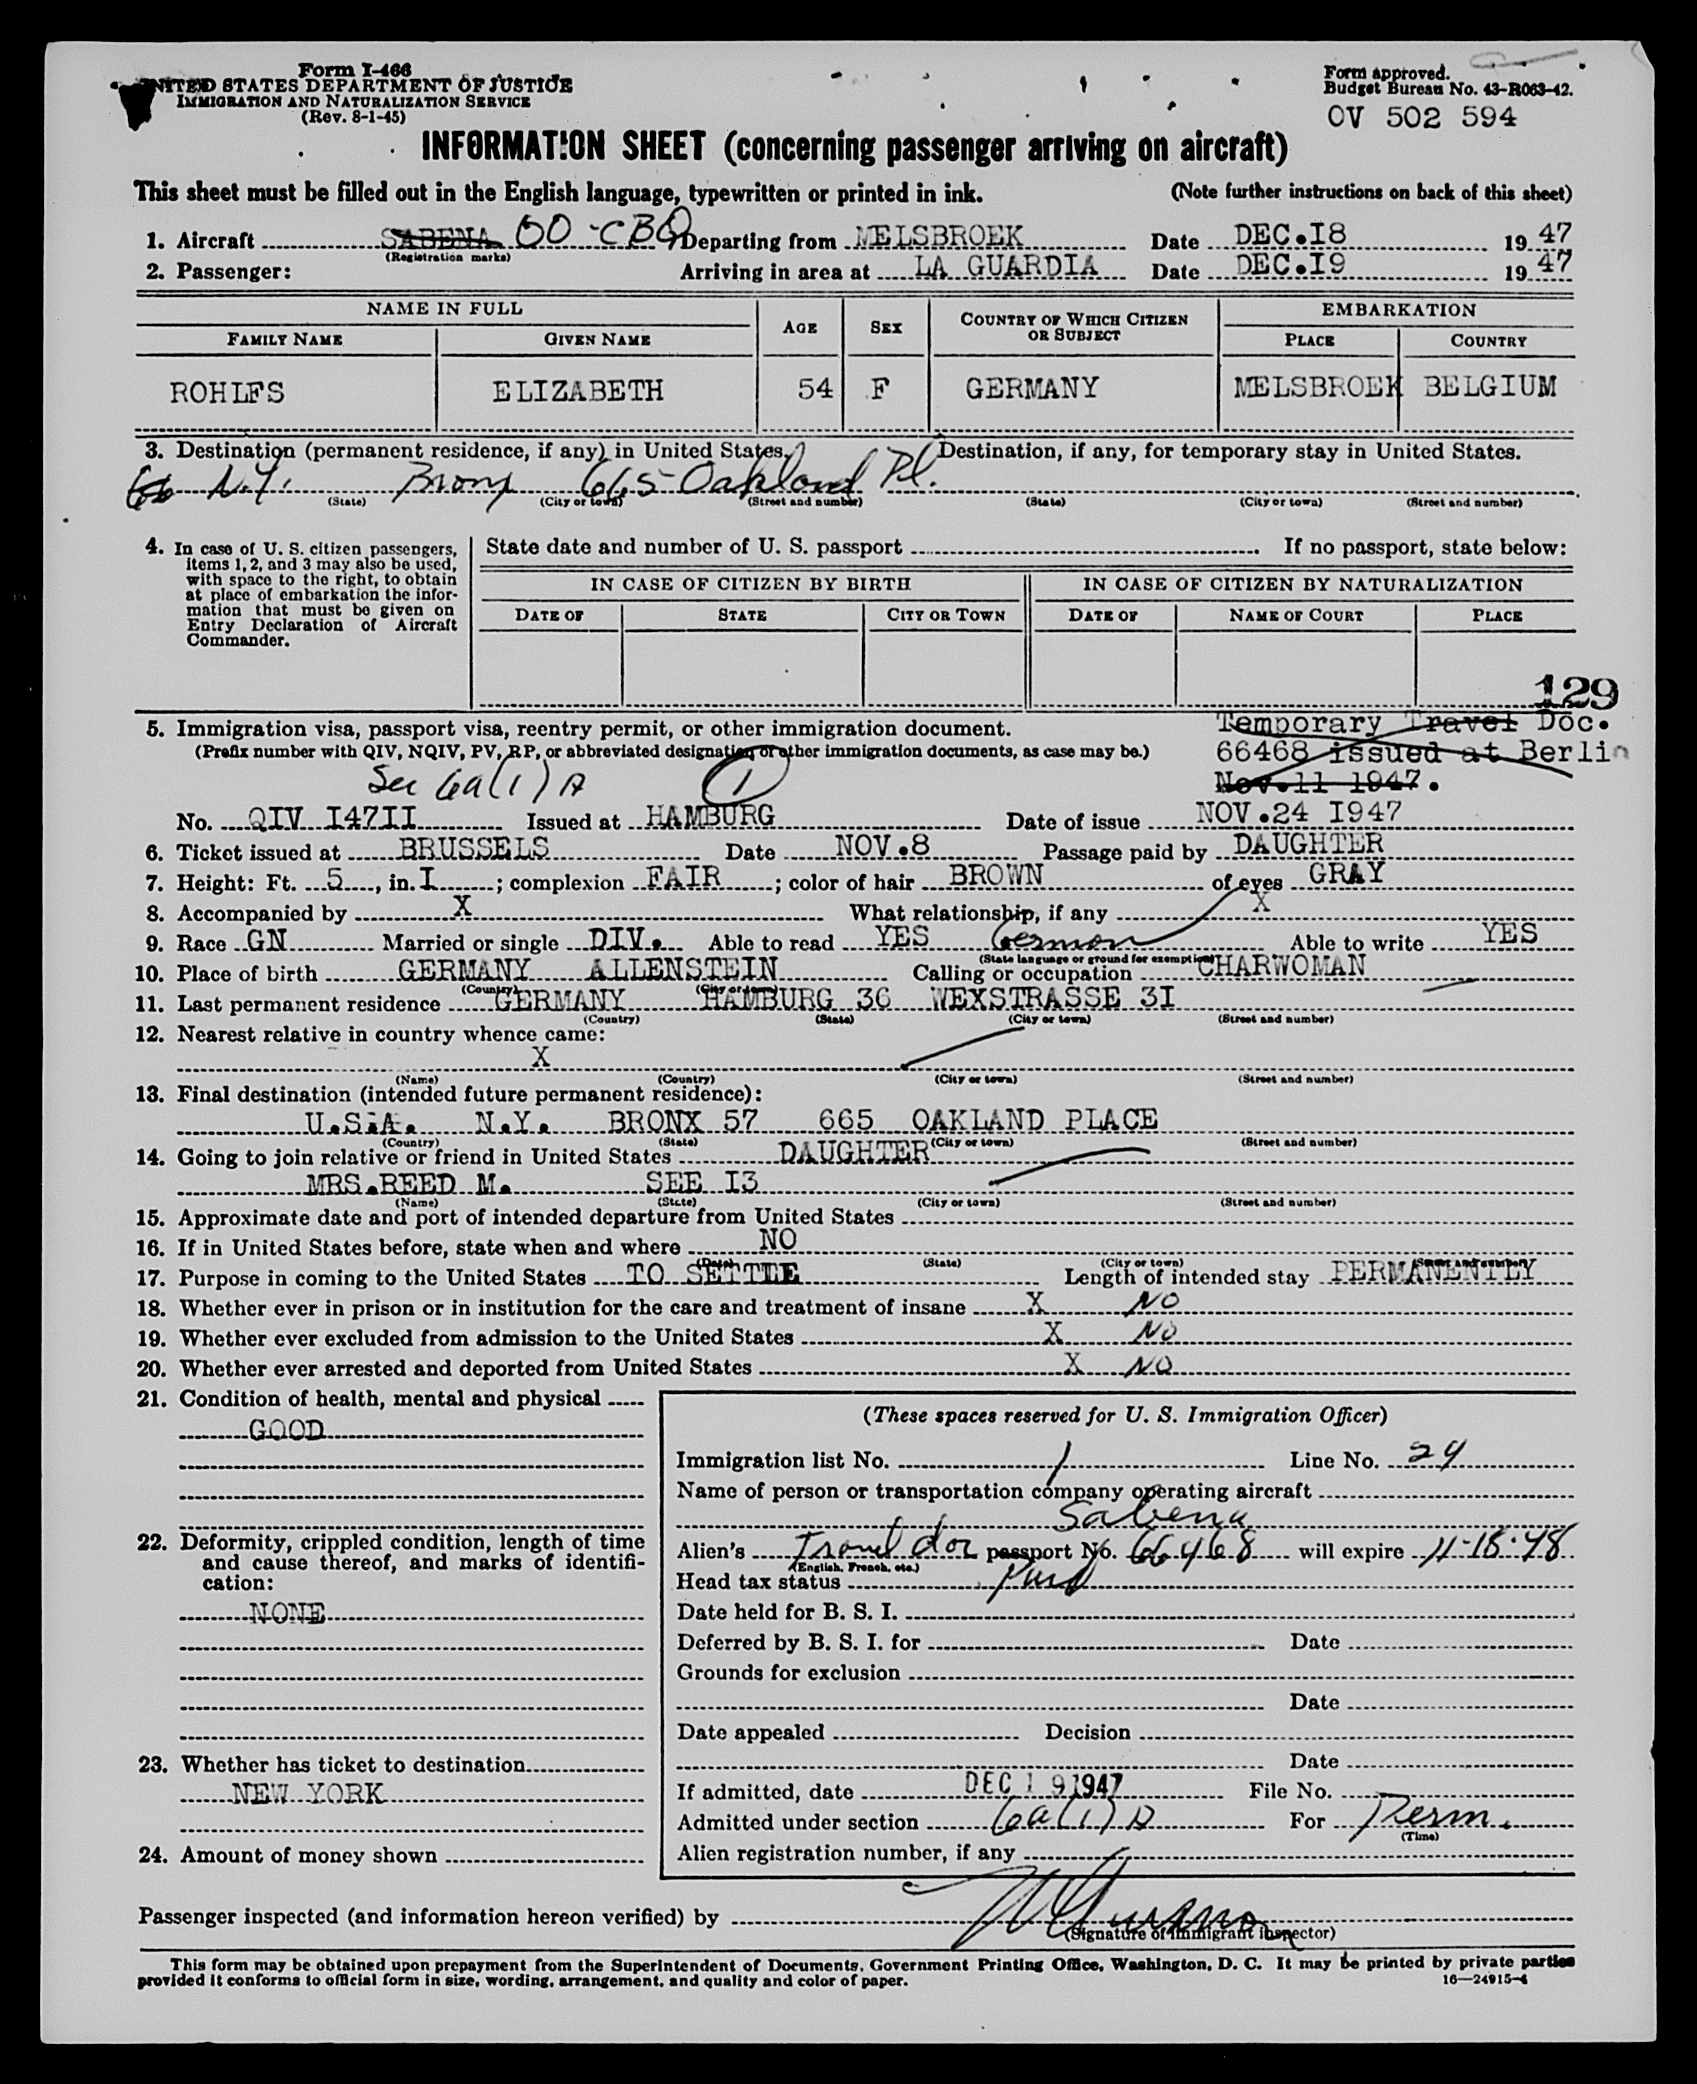 Form I-466
UNITED STATES DEPARTMENT OF JUSTICE
IMMIGRATION AND NATURALIZATION SERVICE
(Rev. 8-1-45)
Form approved.
Budget Bureau No. 43-R063-42.
OV 502 594
INFORMATION SHEET (concerning passenger arriving on aircraft)
This sheet must be filled out in the English language, typewritten or printed in ink. (Note further instructions on back of this sheet)
1. Aircraft SABENA OO-CBQ Departing from MELSBROEK Date DEC.I8 1947
(Registration marks)
2. Passenger: Arriving in area at LA GUARDIA Date DEC.I9 1947
NAME IN FULL AGE SEX COUNTRY OF WHICH CITIZEN OR SUBJECT EMBARKATION
FAMILY NAME GIVEN NAME PLACE COUNTRY
ROHLFS ELIZABETH 54 F GERMANY MELSBROEK BELGIUM
3. Destination (permanent residence, if any) in United States. Destination, if any, for temporary stay in United States.
N.Y. Bronx 665 Oakland Pl.
(State) (City or town) (Street and number) (State) (City or town) (Street and number)
4. In case of U. S. citizen passengers, items 1, 2, and 3 may also be used, with space to the right, to obtain at place of embarkation the information that must be given on Entry Declaration of Aircraft Commander.
State date and number of U. S. passport . If no passport, state below:
IN CASE OF CITIZEN BY BIRTH IN CASE OF CITIZEN BY NATURALIZATION
DATE OF STATE CITY OR TOWN DATE OF NAME OF COURT PLACE
129
5. Immigration visa, passport visa, reentry permit, or other immigration document.
(Prefix number with QIV, NQIV, PV, RP, or abbreviated designation of other immigration documents, as case may be.)
Temporary Travel Doc.
66468 issued at Berlin
Nov.11 1947.
Sec 6a(1)A 1
No. QIV I47II Issued at HAMBURG Date of issue NOV.24 I947
6. Ticket issued at BRUSSELS Date NOV.8 Passage paid by DAUGHTER
7. Height: Ft. 5, in. I; complexion FAIR; color of hair BROWN of eyes GRAY
8. Accompanied by X What relationship, if any X
9. Race GN Married or single DIV. Able to read YES German Able to write YES
(State language or ground for exemption)
10. Place of birth GERMANY ALLENSTEIN Calling or occupation CHARWOMAN
(Country) (City or town)
11. Last permanent residence GERMANY HAMBURG 36 WEXSTRASSE 3I
(Country) (State) (City or town) (Street and number)
12. Nearest relative in country whence came:
X
(Name) (Country) (City or town) (Street and number)
13. Final destination (intended future permanent residence):
U.S.A. N.Y. BRONX 57 665 OAKLAND PLACE
(Country) (State) (City or town) (Street and number)
14. Going to join relative or friend in United States DAUGHTER
MRS.REED M. SEE I3
(Name) (State) (City or town) (Street and number)
15. Approximate date and port of intended departure from United States
16. If in United States before, state when and where NO
(Date) (State) (City or town) (Street and number)
17. Purpose in coming to the United States TO SETTLE Length of intended stay PERMANENTLY
18. Whether ever in prison or in institution for the care and treatment of insane X NO
19. Whether ever excluded from admission to the United States X NO
20. Whether ever arrested and deported from United States X NO
21. Condition of health, mental and physical
GOOD
22. Deformity, crippled condition, length of time and cause thereof, and marks of identification:
NONE
23. Whether has ticket to destination
NEW YORK
24. Amount of money shown
(These spaces reserved for U. S. Immigration Officer)
Immigration list No. 1 Line No. 24
Name of person or transportation company operating aircraft
Sabena
Alien's Travel doc passport No. 66468 will expire 11-18-48
(English, French, etc.)
Head tax status Paid
Date held for B. S. I.
Deferred by B. S. I. for Date
Grounds for exclusion
Date
Date appealed Decision
Date
If admitted, date DEC 19 1947 File No.
Admitted under section 6a(1)A For Perm.
(Time)
Alien registration number, if any
Passenger inspected (and information hereon verified) by
(Signature of immigrant inspector)
This form may be obtained upon prepayment from the Superintendent of Documents, Government Printing Office, Washington, D. C. It may be printed by private parties
provided it conforms to official form in size, wording, arrangement, and quality and color of paper. 16—24915-4